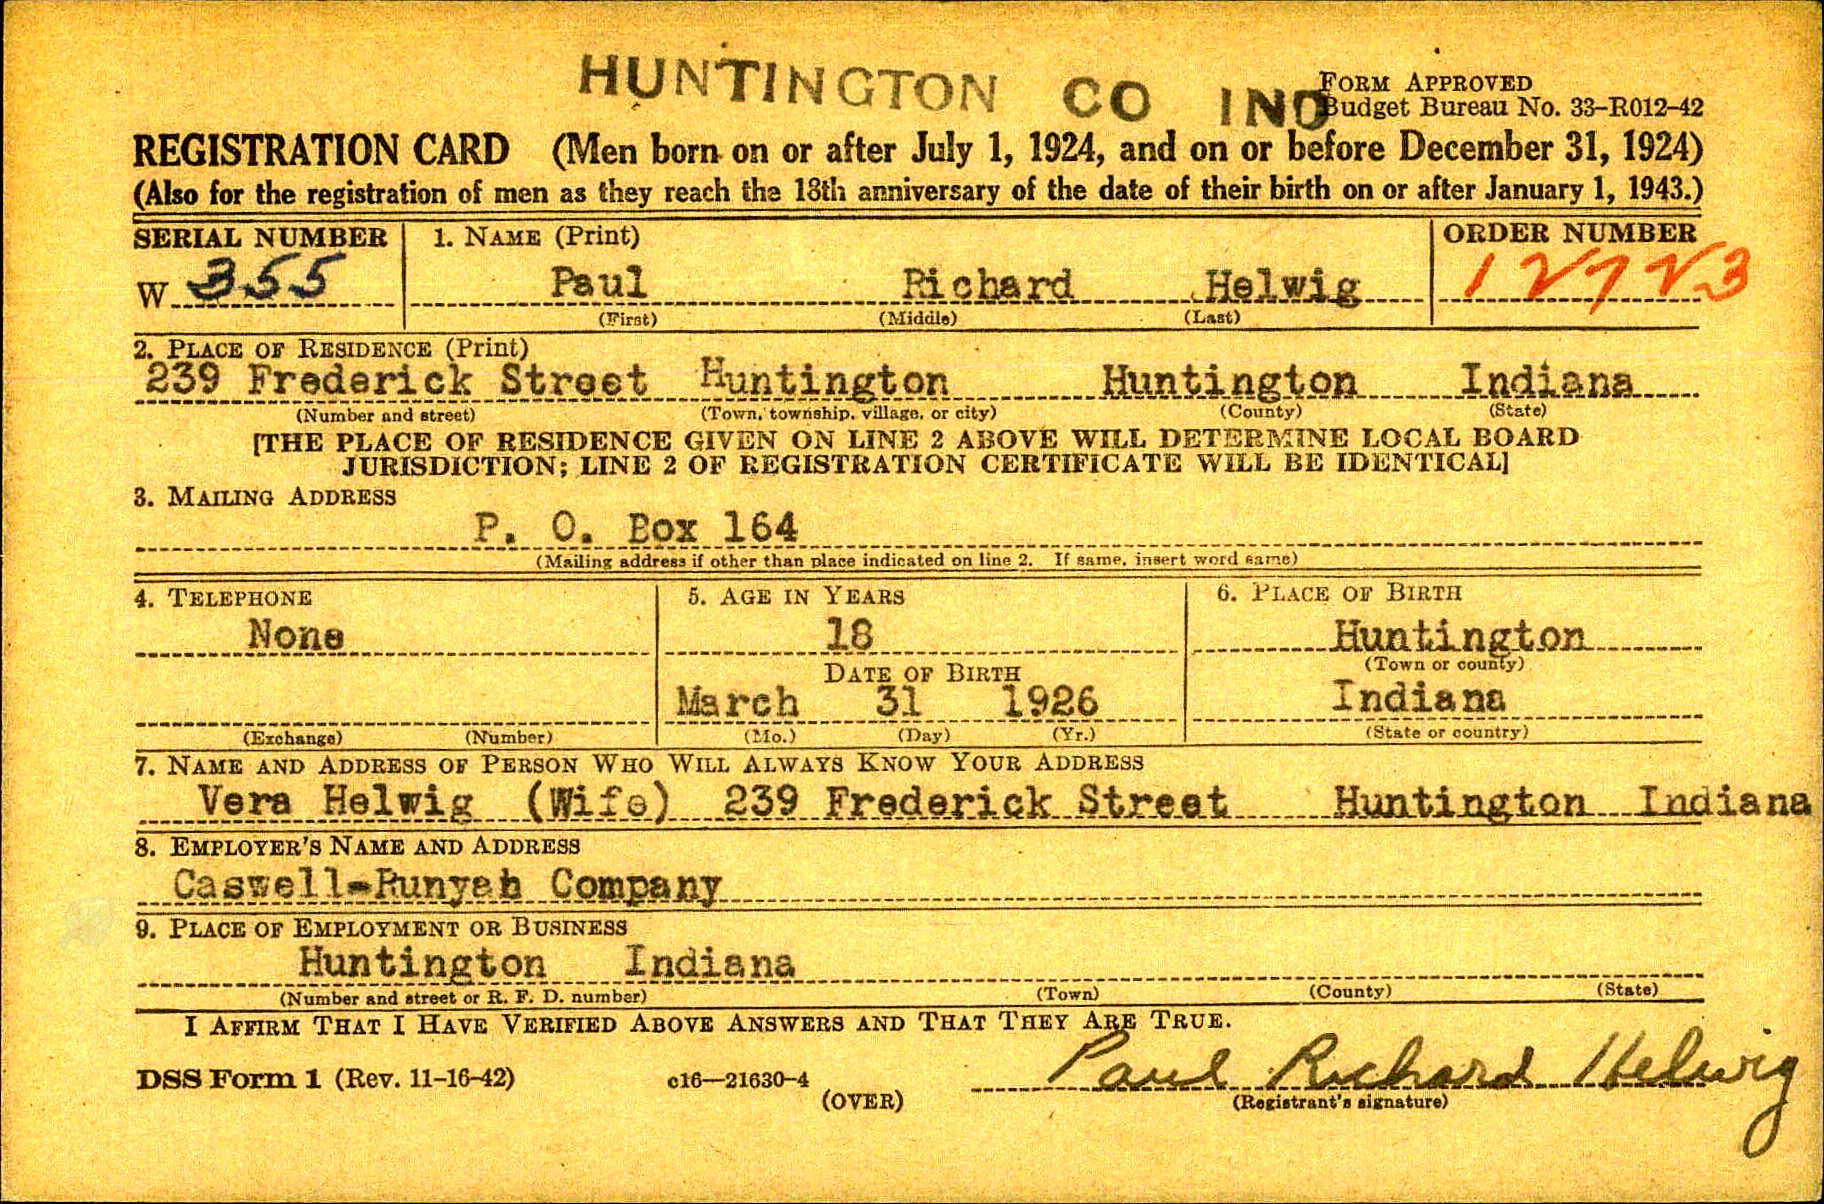 HUNTINGTON CO IND
FORM APPROVED
Budget Bureau No. 33-R012-42
REGISTRATION CARD (Men born on or after July 1, 1924, and on or before December 31, 1924)
(Also for the registration of men as they reach the 18th anniversary of the date of their birth on or after January 1, 1943.)
SERIAL NUMBER 1. NAME (Print) ORDER NUMBER
W 355 Paul Richard Helwig 12723
(First) (Middle) (Last)
2. PLACE OF RESIDENCE (Print)
239 Frederick Street Huntington Huntington Indiana
(Number and street) (Town, township, village, or city) (County) (State)
[THE PLACE OF RESIDENCE GIVEN ON LINE 2 ABOVE WILL DETERMINE LOCAL BOARD
JURISDICTION; LINE 2 OF REGISTRATION CERTIFICATE WILL BE IDENTICAL]
3. MAILING ADDRESS
P. O. Box 164
(Mailing address if other than place indicated on line 2. If same, insert word same)
4. TELEPHONE 5. AGE IN YEARS 6. PLACE OF BIRTH
None 18 Huntington
(Town or county)
DATE OF BIRTH
March 31 1926 Indiana
(Exchange) (Number) (Mo.) (Day) (Yr.) (State or country)
7. NAME AND ADDRESS OF PERSON WHO WILL ALWAYS KNOW YOUR ADDRESS
Vera Helwig (Wife) 239 Frederick Street Huntington Indiana
8. EMPLOYER'S NAME AND ADDRESS
Caswell-Runyah Company
9. PLACE OF EMPLOYMENT OR BUSINESS
Huntington Indiana
(Number and street or R. F. D. number) (Town) (County) (State)
I AFFIRM THAT I HAVE VERIFIED ABOVE ANSWERS AND THAT THEY ARE TRUE.
DSS Form 1 (Rev. 11-16-42) c16—21630-4 Paul Richard Helwig
(OVER) (Registrant's signature)